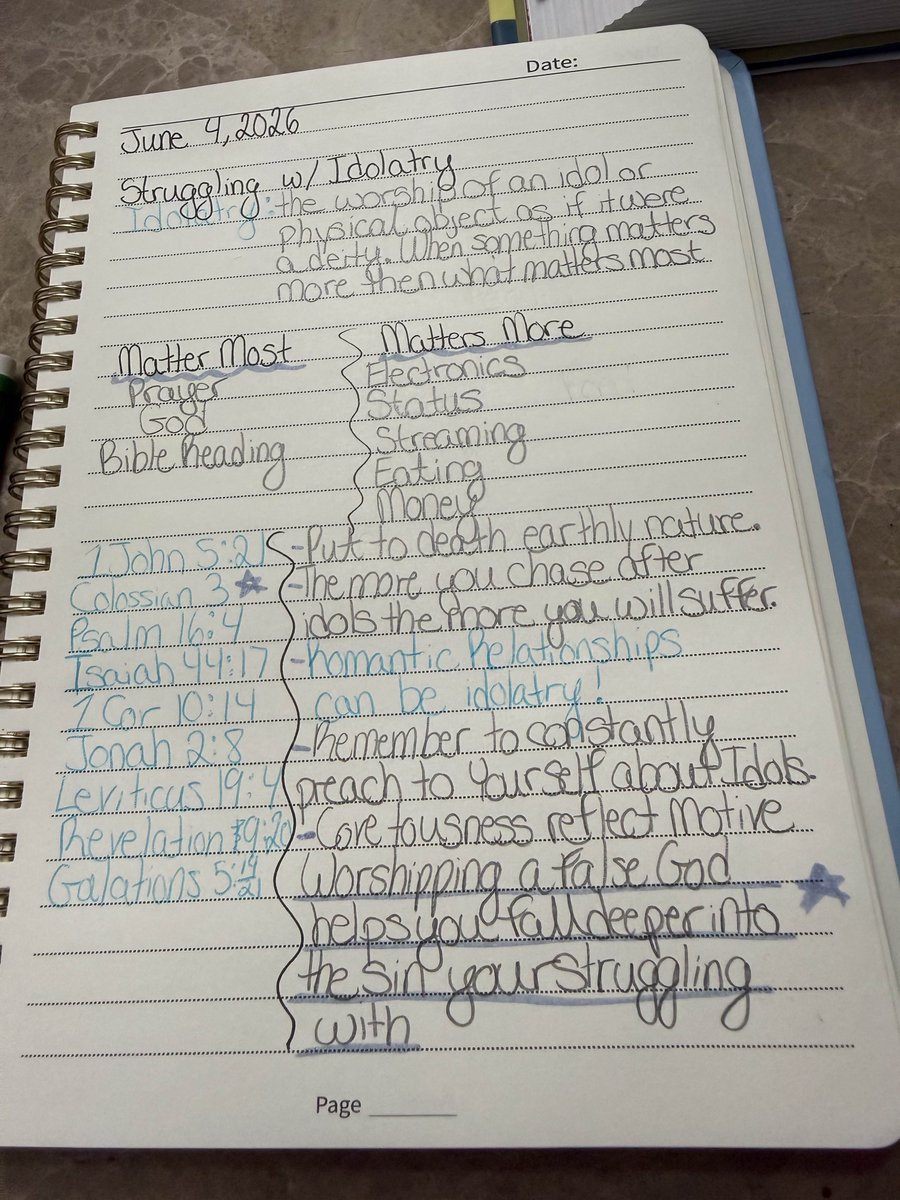 Date:
June 4, 2026
Struggling w/ Idolatry
Idolatry: the worship of an idol or
physical object as if it were
a deity. When something matters
more then what matters most
Matter Most
Prayer
God
Bible Reading
Matters More
Electronics
Status
Streaming
Eating
Money
1 John 5:21
Colossian 3
Psalm 16:4
Isaiah 44:17
1 Cor 10:14
Jonah 2:8
Leviticus 19:4
Revelation 9:20
Galations 5:19/21
-Put to death earthly nature.
-The more you chase after
idols the more you will suffer.
-Romantic Relationships
can be idolatry!
-Remember to constantly
preach to yourself about Idols.
-Covetousness reflect Motive
Worshipping a false God
helps you fall deeper into
the sin your struggling
with
Page